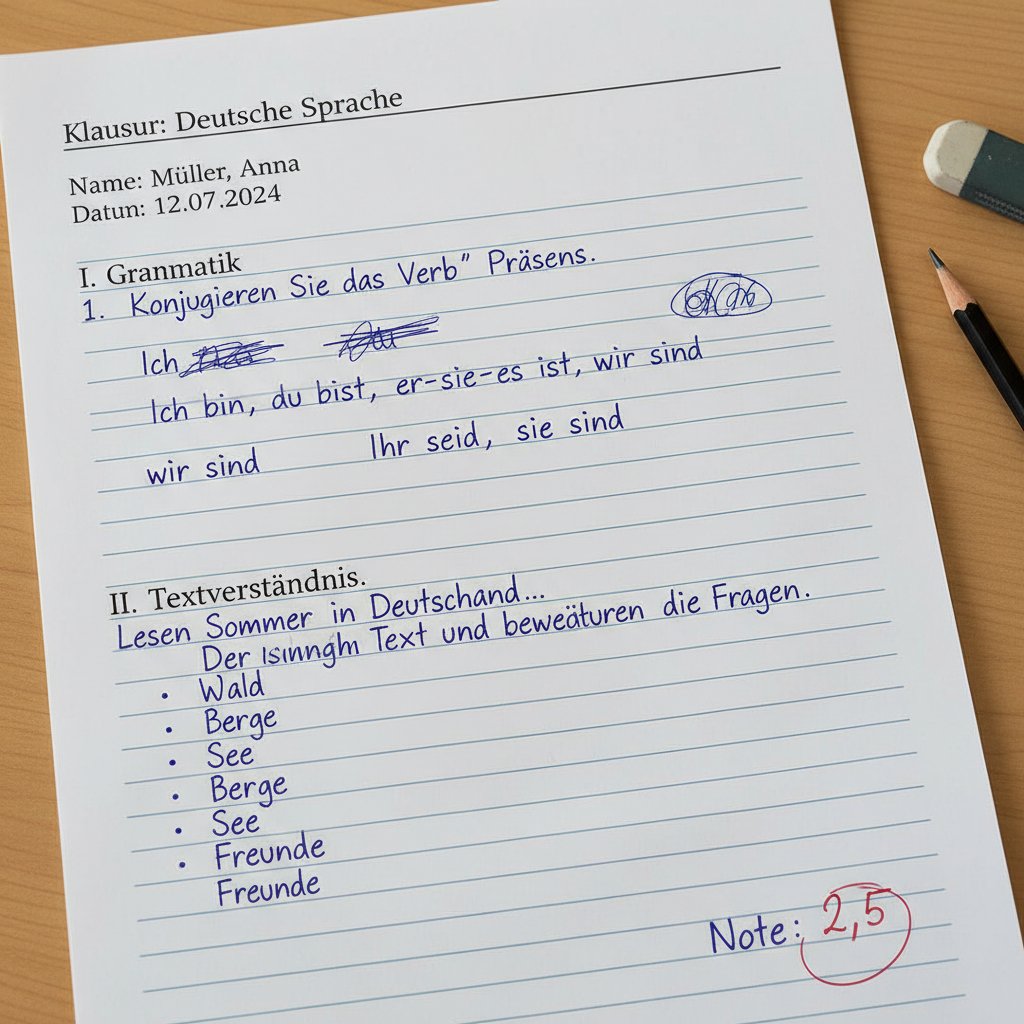 Klausur: Deutsche Sprache
Name: Müller, Anna
Datun: 12.07.2024
I. Granmatik
1. Konjugieren Sie das Verb" Präsens.
Ich
Ich bin, du bist, er-sie-es ist, wir sind
wir sind Ihr seid, sie sind
II. Textverständnis.
Lesen Sommer in Deutschand...
Der Text und beweäturen die Fragen.
• Wald
• Berge
• See
• Berge
• See
• Freunde
Freunde
Note: 2,5